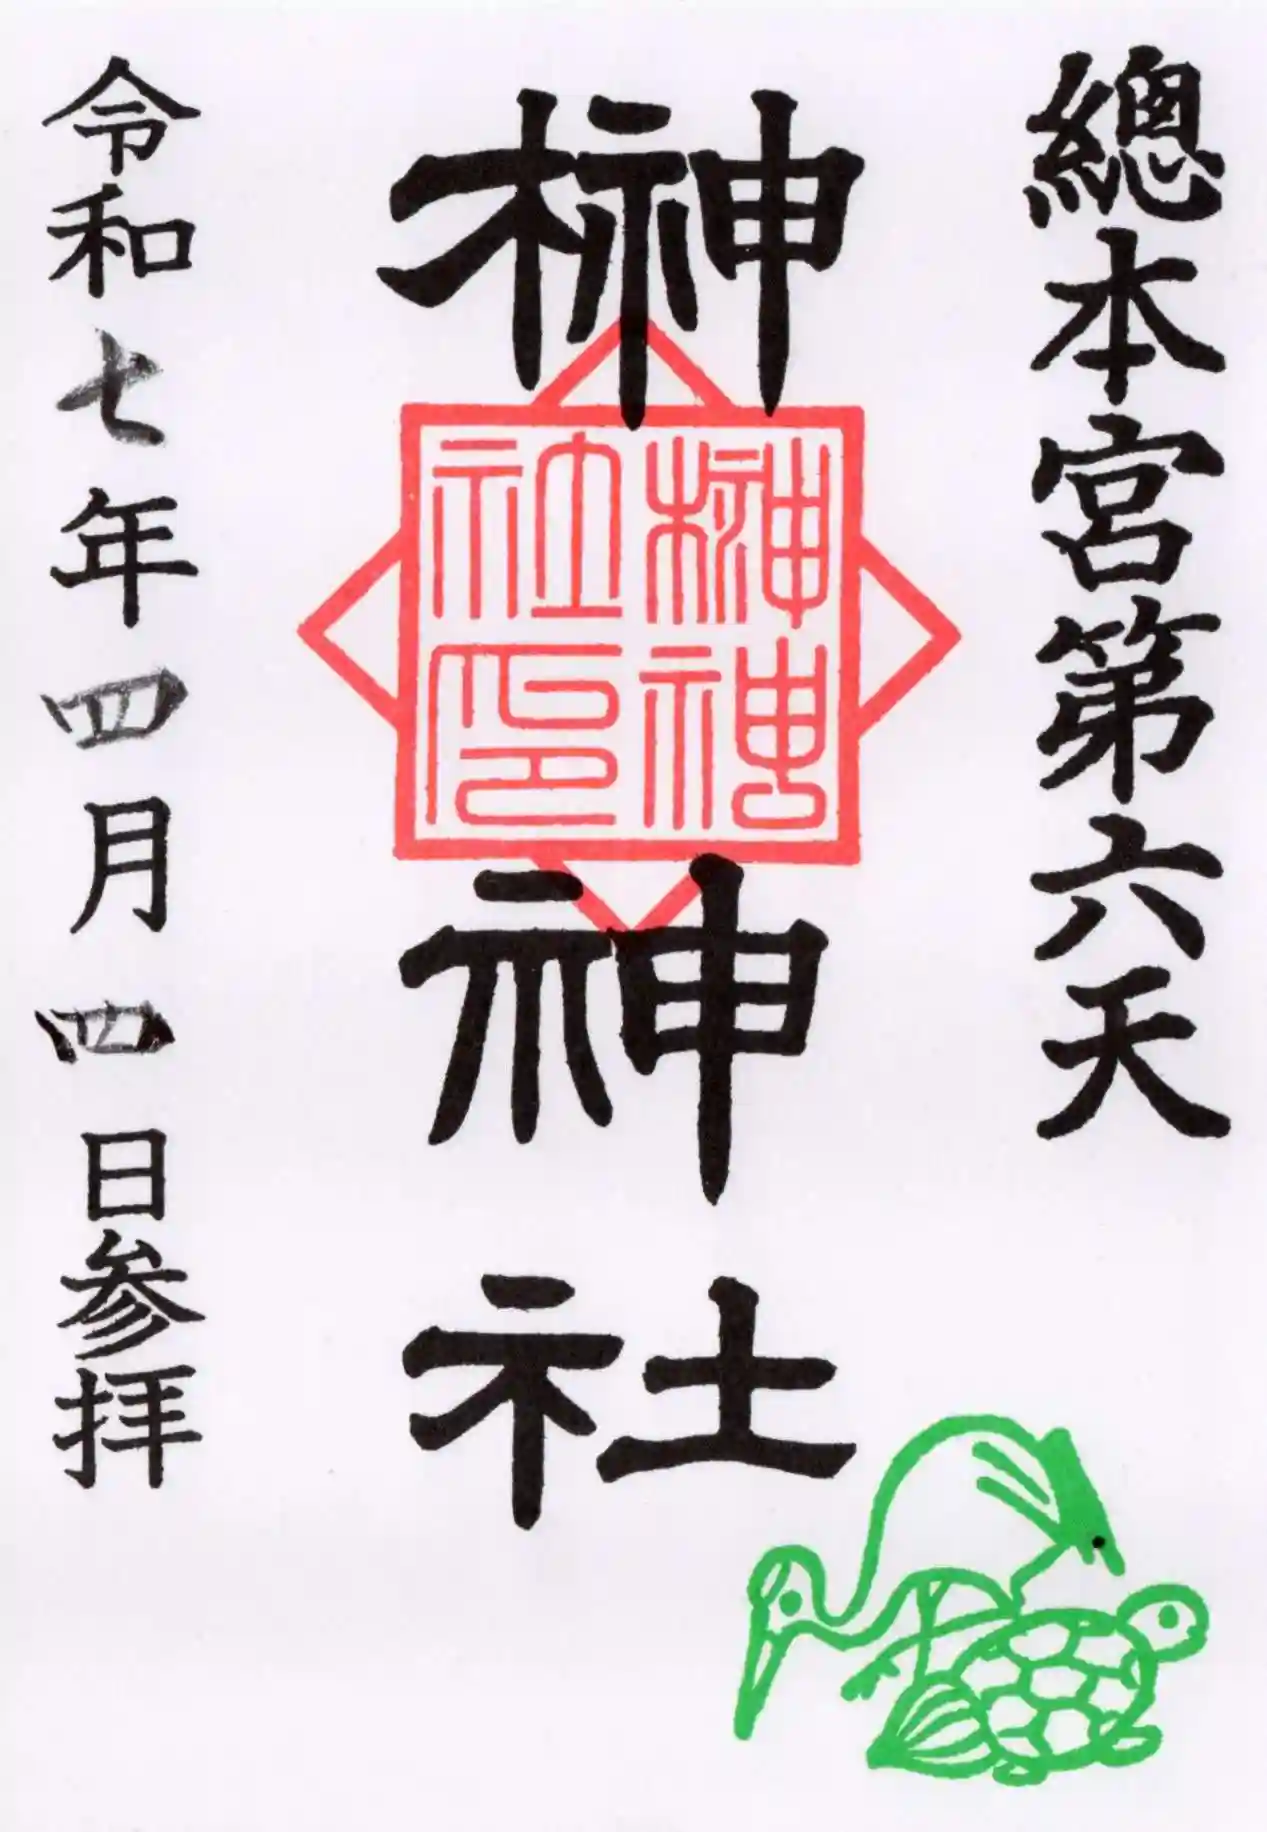 總本宮第六天
榊神社
榊神
社印
令和七年四月四日参拝